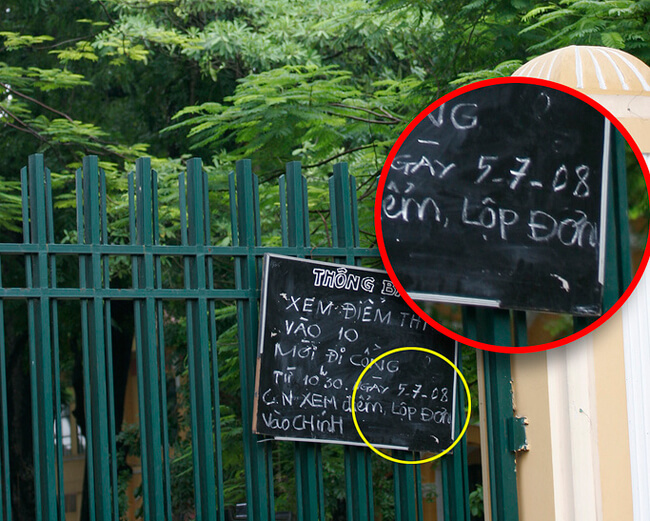 THÔNG BÁ
XEM ĐIỂM THI
VÀO 10
MỜI ĐI CỔNG
TỪ 10h30. GÀY 5-7-08
XEM điểm, LỘP ĐƠN
VÀO CHÍNH
NG
GÀY 5-7-08
ểm, LỘP ĐƠN